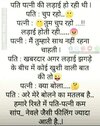 पति पत्नी की लड़ाई हो रही थी।
पति : चुप रहो...
पत्नी : तुम चुप रहो ...
लड़ाई होती रही...
पत्नी : मैं तुम्हारे साथ नहीं रहना
चाहती।
पति : खबरदार अगर लड़ाई झगड़े
के बीच में कोई खुशी वाली बात
की तो
पत्नी : क्या बोला...
पति : अरे मेरे बोलने का मतलब है..
हमारे रिश्ते में पति-पत्नी कम
सांप_ नेवले जैसी फीलिंग ज्यादा
आती है।